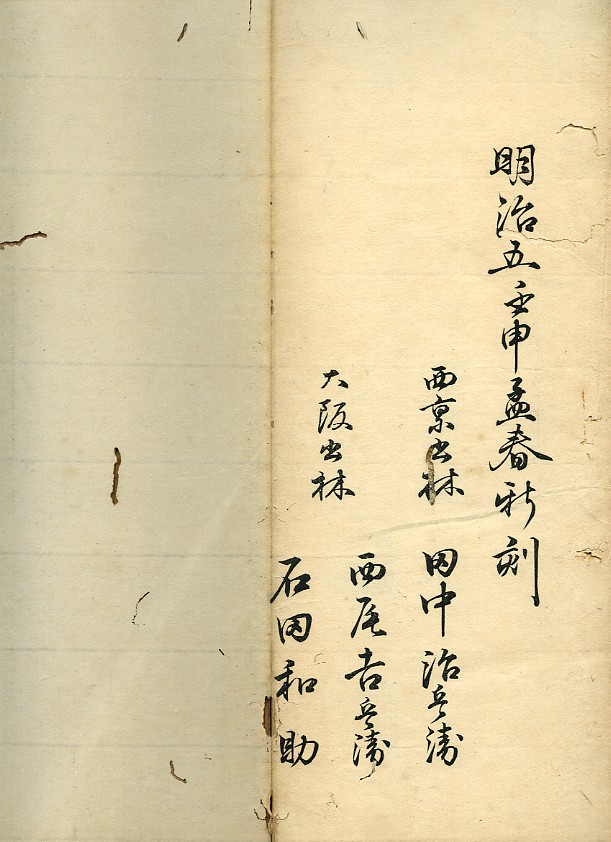 明治五壬申孟春新刻
西京書林
田中治兵衛
西尾吉兵衛
大阪書林
石田和助